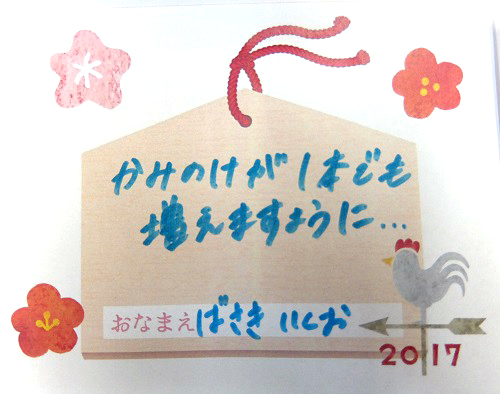 かみのけが1本でも
増えますように...
おなまえ ばさき いくお
2017